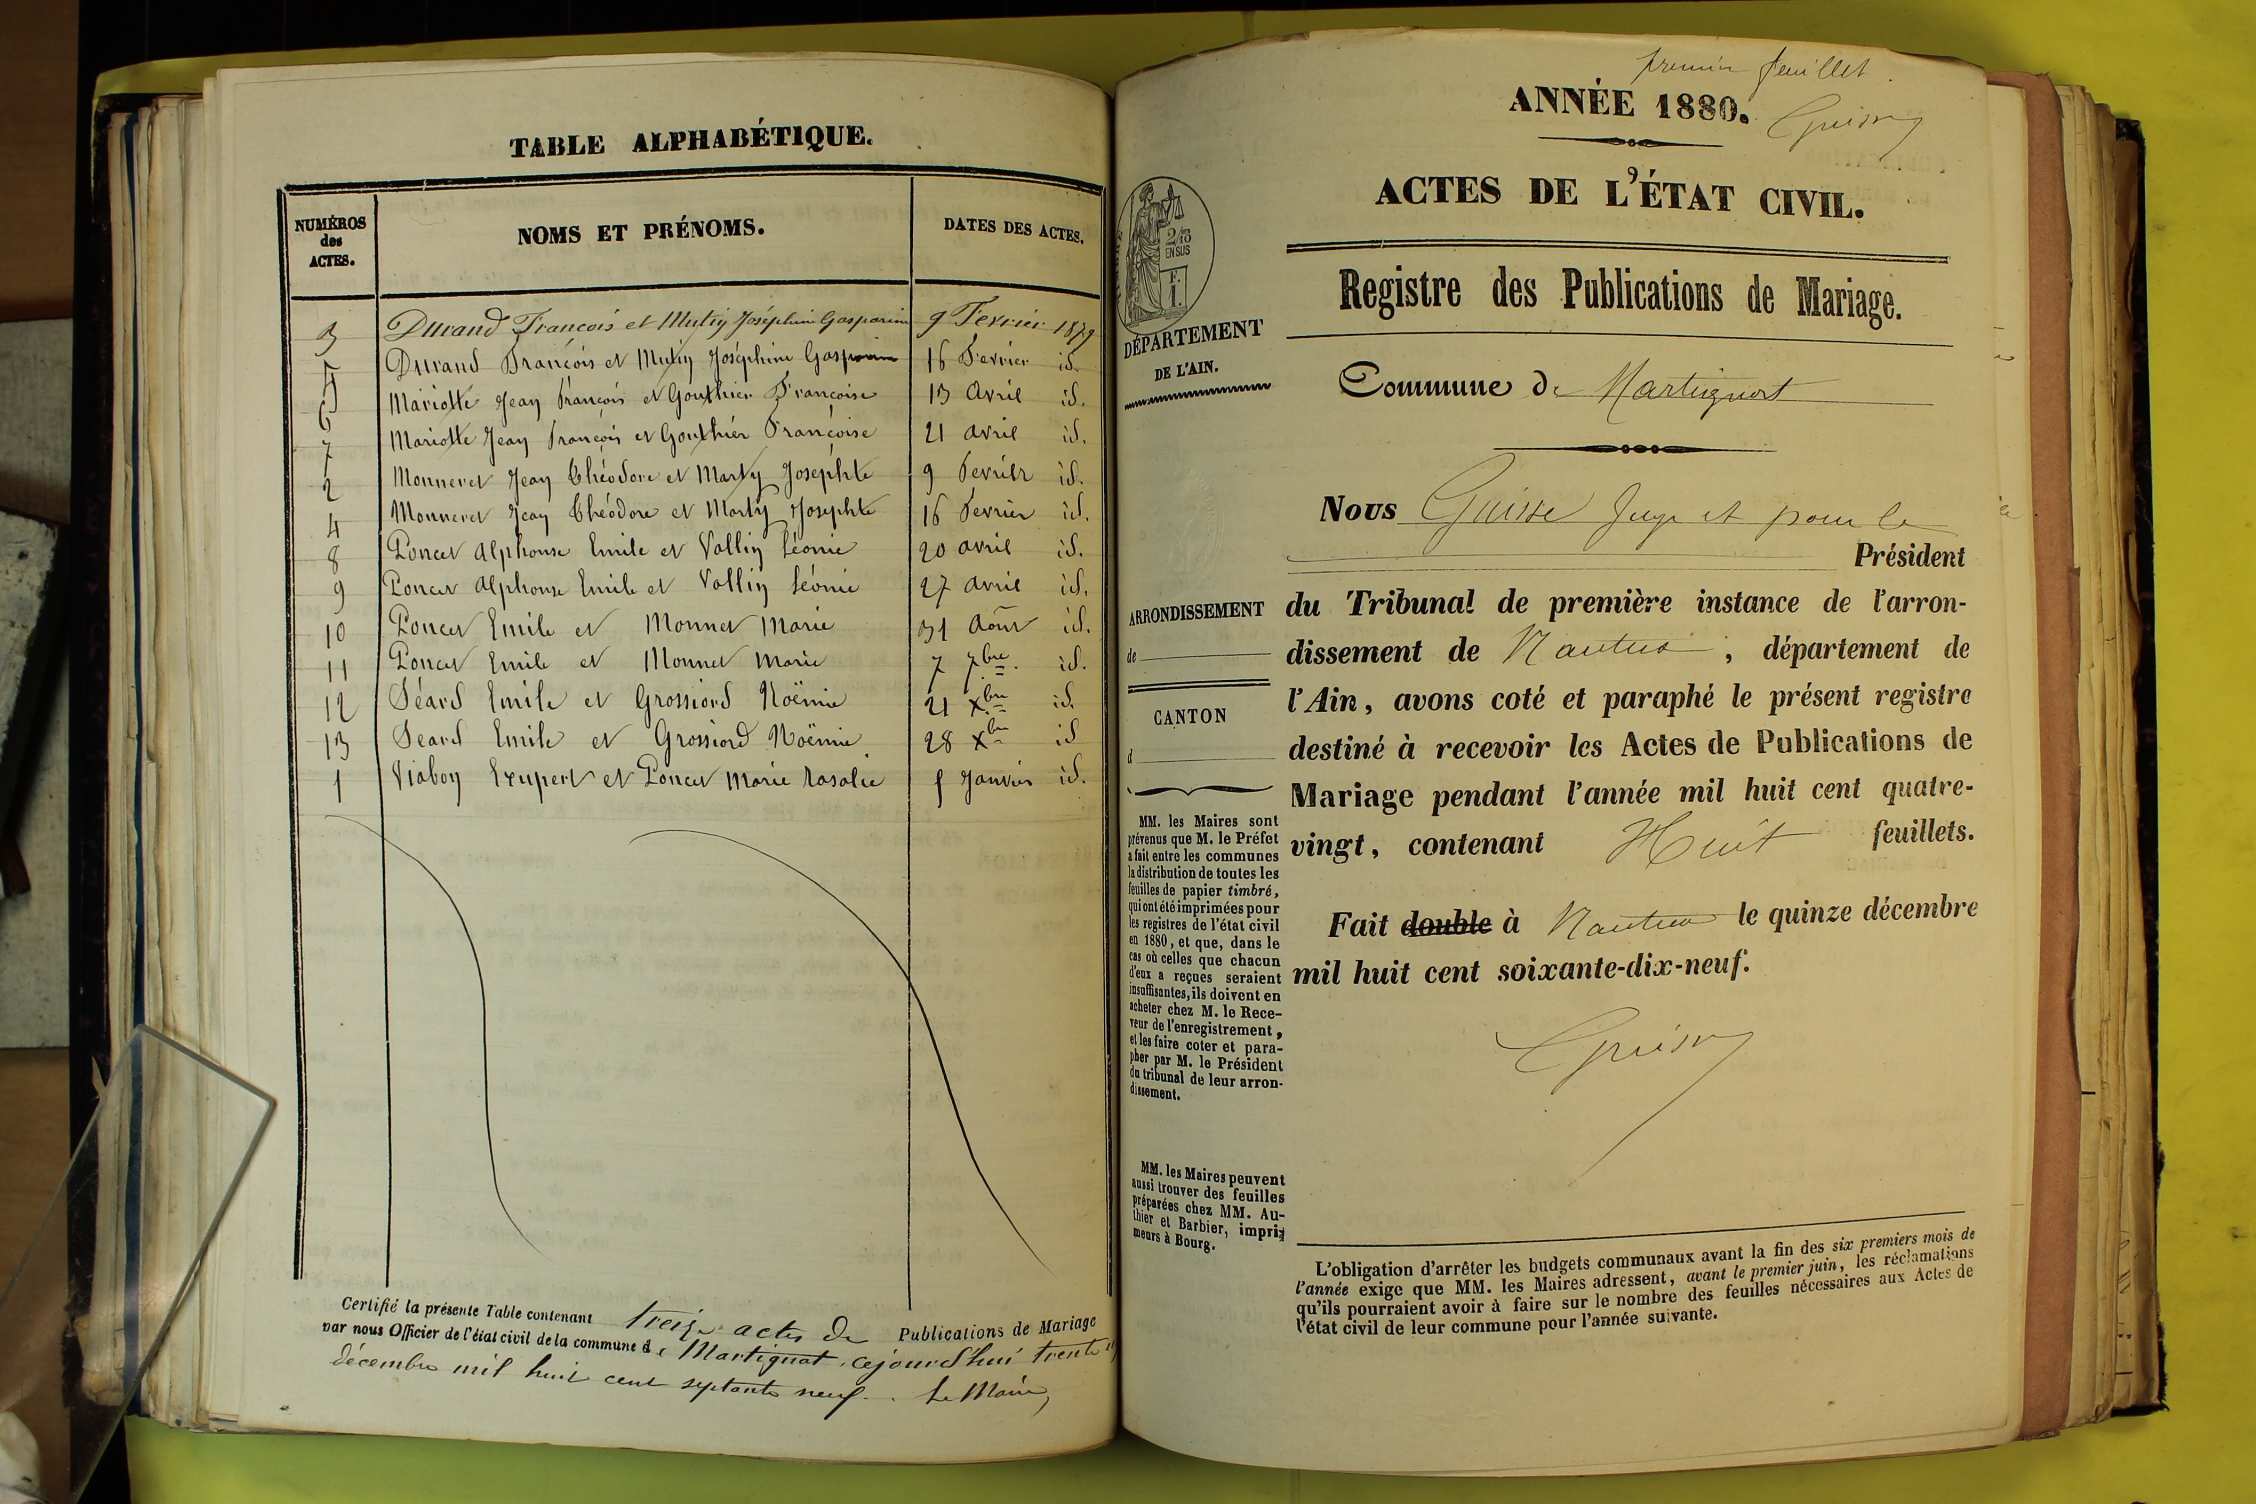 TABLE ALPHABÉTIQUE.
NUMÉROS des ACTES. NOMS ET PRÉNOMS. DATES DES ACTES.
3 Durand François et Mutin Joséphine Gasparine 9 Fevrier 1879
5 Durand François et Mutin Joséphine Gasparine 16 Fevrier id.
6 Mariotte Jean François et Gouthier Françoise 13 Avril id.
7 Mariotte Jean François et Gouthier Françoise 21 avril id.
2 Monneret Jean Théodore et Marty Josephte 9 Fevrier id.
4 Monneret Jean Théodore et Marty Josephte 16 Fevrier id.
8 Poncet Alphonse Emile et Vallin Léonie 20 avril id.
9 Poncet Alphonse Emile et Vallin Léonie 27 avril id.
10 Poncet Emile et Monnet Marie 31 Août id.
11 Poncet Emile et Monnet Marie 7 7bre. id.
12 Séard Emile et Grossiord Noëmie 21 Xbre id.
13 Seard Emile et Grossiord Noëmie 28 Xbre id
1 Viaboy Exupert et Poncet Marie Rosalie 5 Janvier id.
Certifié la présente Table contenant treize actes de Publications de Mariage
par nous Officier de l'état civil de la commune de Martignat, cejourd'hui trente un
décembre mil huit cent septante neuf. Le Maire,
premier feuillet.
ANNÉE 1880.
Guisse
ACTES DE L'ÉTAT CIVIL.
2/10
EN SUS
Registre des Publications de Mariage.
DÉPARTEMENT
DE L'AIN.
Commune de Martignat
Nous Guisse Juge et pour le
Président
ARRONDISSEMENT
de
CANTON
d
du Tribunal de première instance de l'arron-
dissement de Nantua, département de
l'Ain, avons coté et paraphé le présent registre
destiné à recevoir les Actes de Publications de
Mariage pendant l'année mil huit cent quatre-
vingt, contenant Huit feuillets.
Fait double à Nantua le quinze décembre
mil huit cent soixante-dix-neuf.
Guisse
MM. les Maires sont
prévenus que M. le Préfet
a fait entre les communes
la distribution de toutes les
feuilles de papier timbré,
qui ont été imprimées pour
les registres de l'état civil
en 1880, et que, dans le
cas où celles que chacun
d'eux a reçues seraient
insuffisantes, ils doivent en
acheter chez M. le Rece-
veur de l'enregistrement,
et les faire coter et para-
pher par M. le Président
du tribunal de leur arron-
dissement.
MM. les Maires peuvent
aussi trouver des feuilles
préparées chez MM. Au-
thier et Barbier, impri-
meurs à Bourg.
L'obligation d'arrêter les budgets communaux avant la fin des six premiers mois de
l'année exige que MM. les Maires adressent, avant le premier juin, les réclamations
qu'ils pourraient avoir à faire sur le nombre des feuilles nécessaires aux Actes de
l'état civil de leur commune pour l'année suivante.